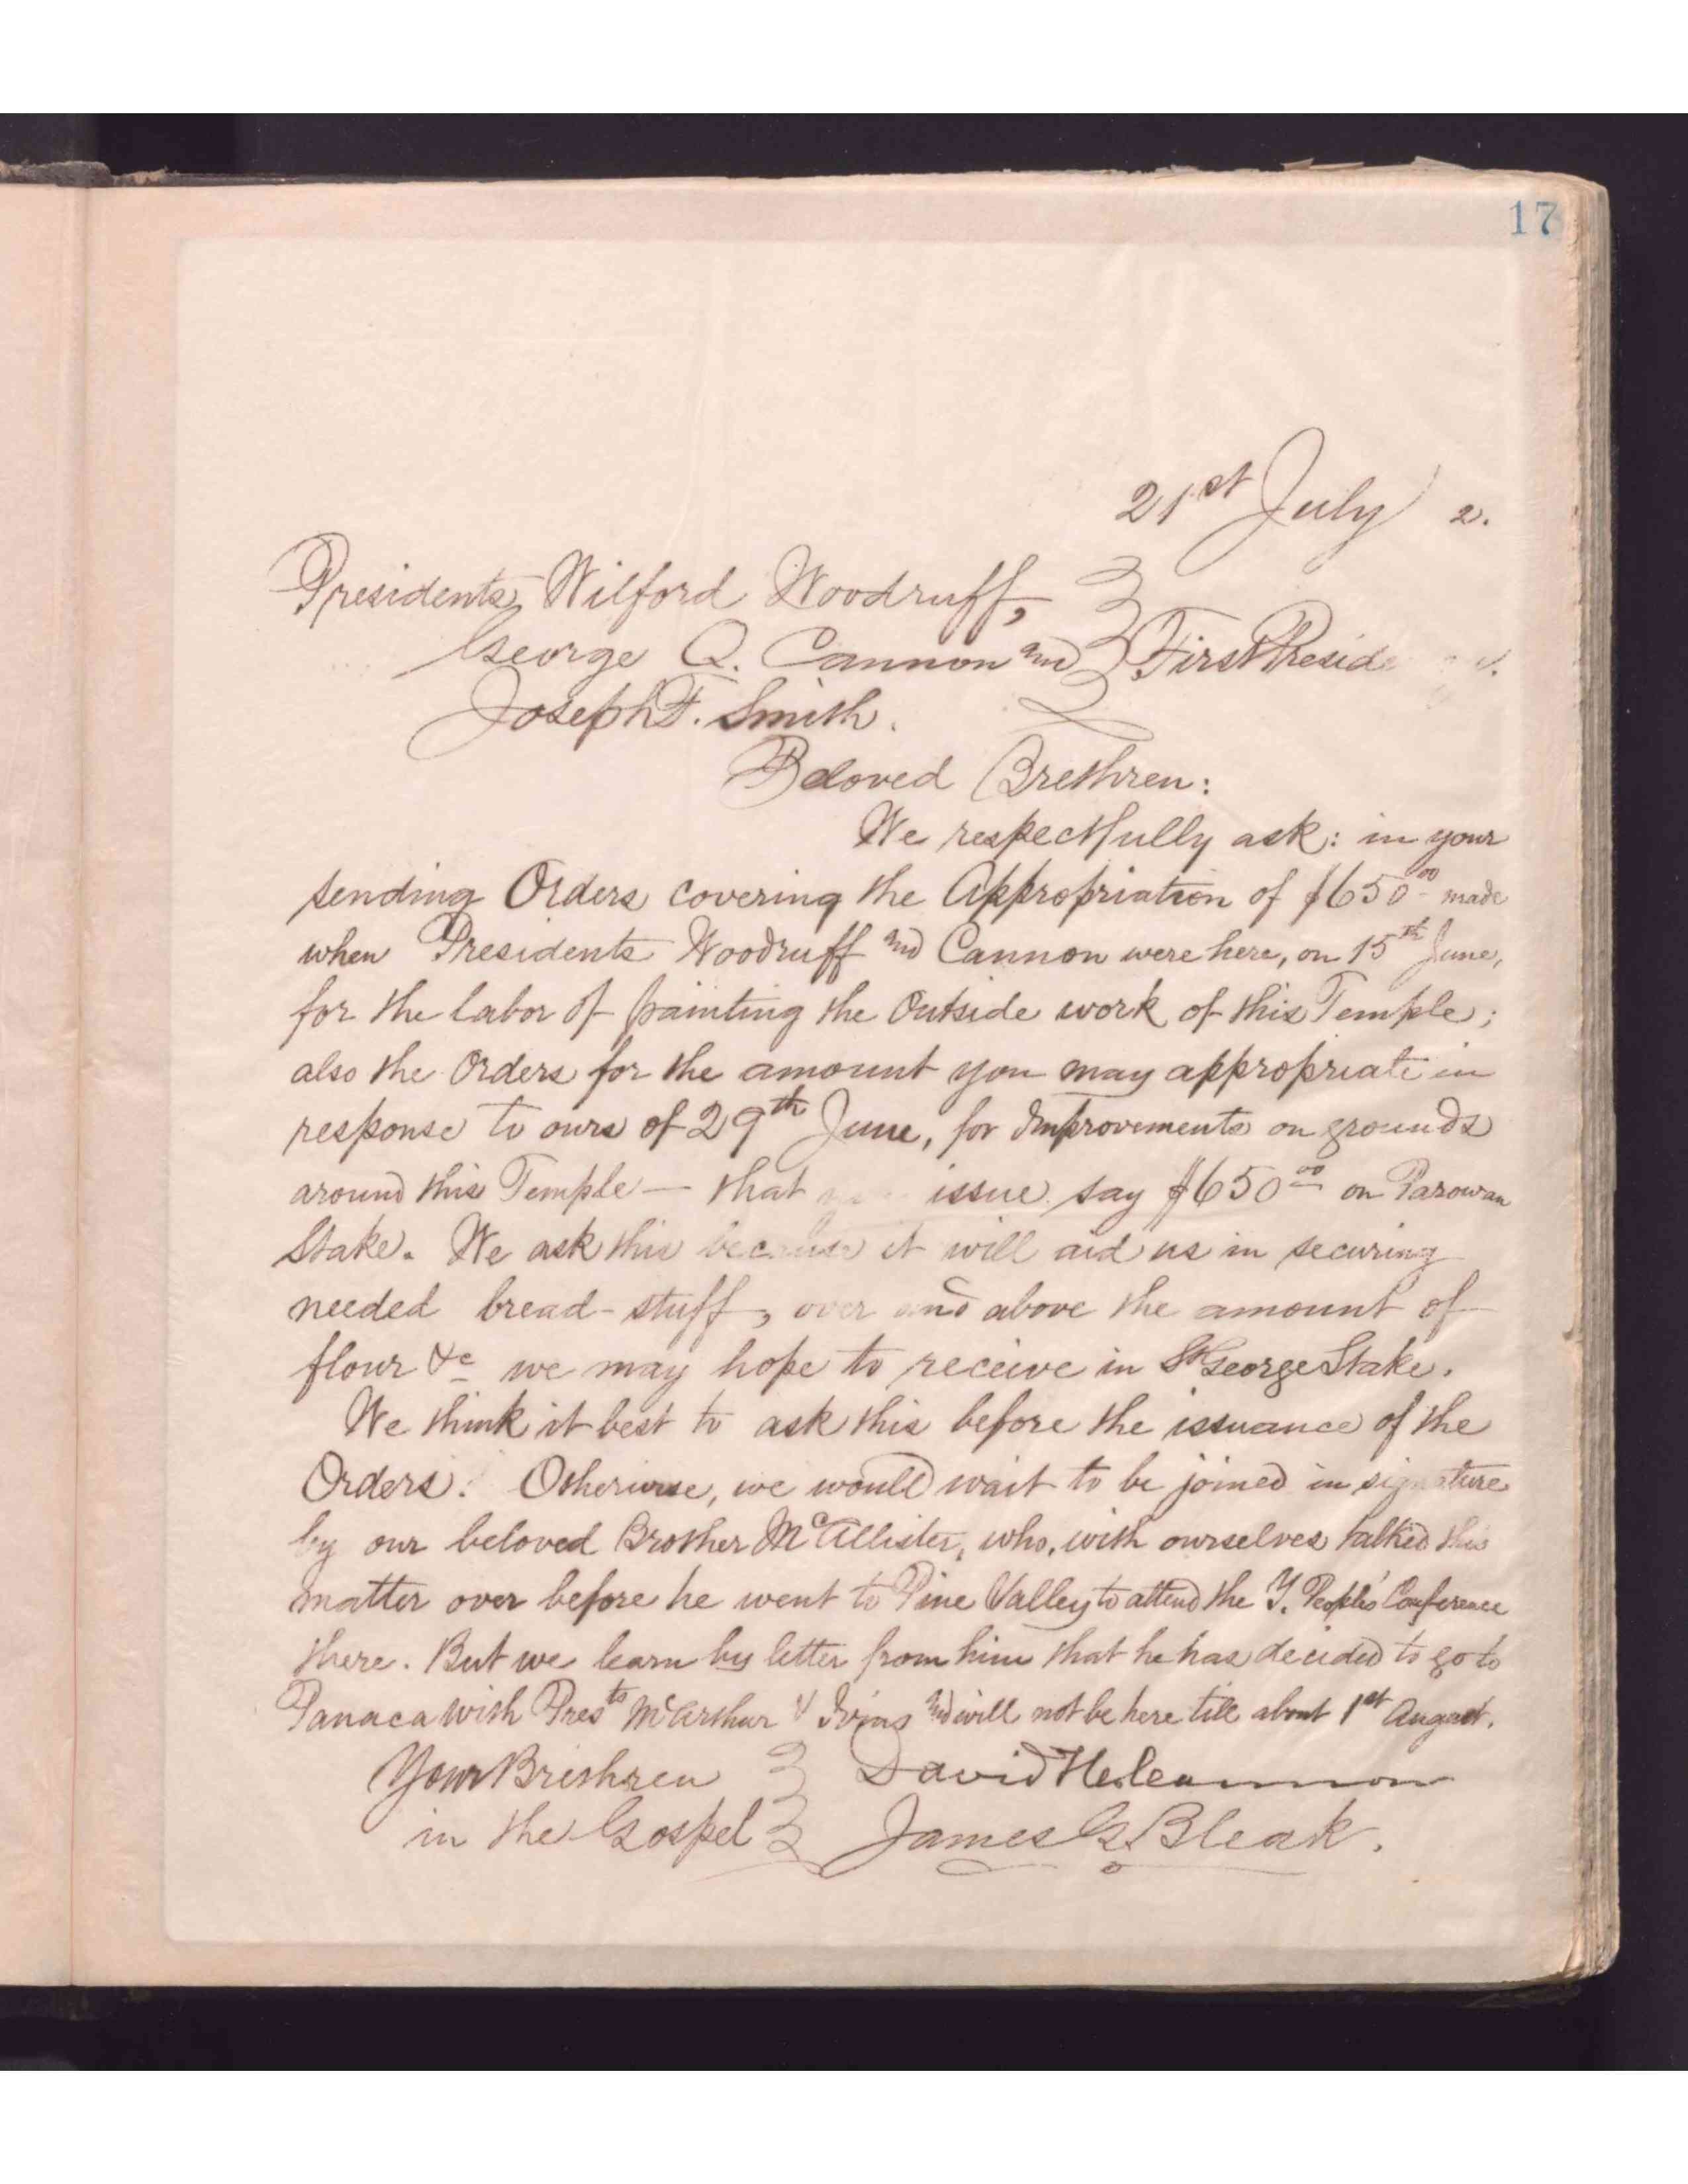 17
21st July 2.
Presidents Wilford Woodruff,
George Q. Cannon and First Preside
Joseph F. Smith.
Beloved Brethren:
We respectfully ask: in your
sending Orders covering the Appropriation of $650 00 made
when Presidents Woodruff and Cannon were here, on 15th June,
for the labor of painting the Outside work of this Temple;
also the Orders for the amount you may appropriate in
response to ours of 29th June, for Improvements on grounds
around this Temple — that issue say $650 00 on Parowan
Stake. We ask this because it will aid us in securing
needed bread-stuff, over and above the amount of
flour &c we may hope to receive in St George Stake.
We think it best to ask this before the issuance of the
Orders. Otherwise, we would wait to be joined in signature
by our beloved Brother McAllister, who, with ourselves talked this
matter over before he went to Pine Valley to attend the Y. People's Conference
there. But we learn by letter from him that he has decided to go to
Panaca with Presto McArthur & Ivins and will not be here till about 1st August.
Your Brethren David H. Cannon
in the Gospel James G. Bleak.